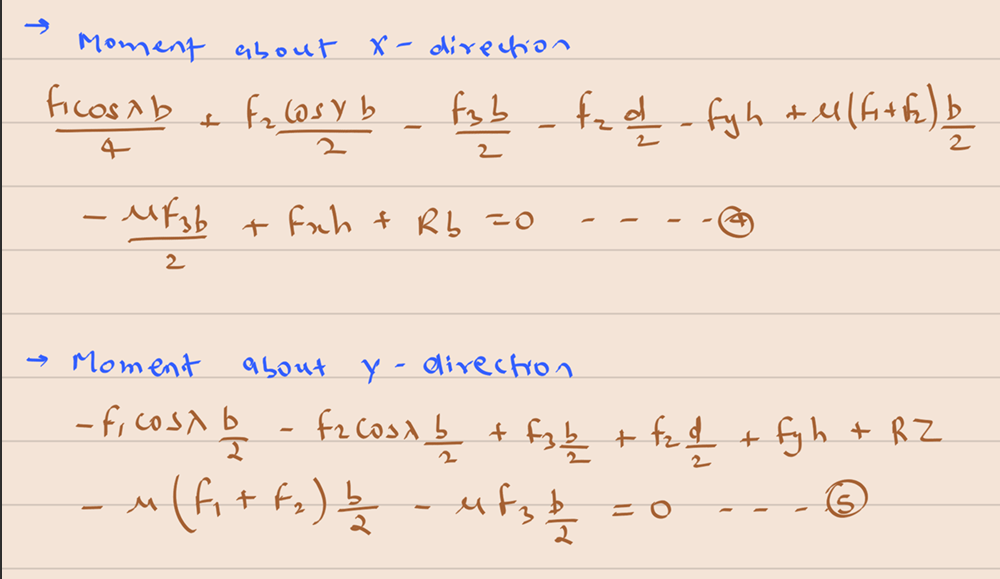 → Moment about x - direction
f₁cosλb/4 + f₂cosγb/2 - f₃b/2 - f₂ d/2 - fyh + μ(f₁+f₂) b/2
- μf₃b/2 + fxh + Rb = 0 - - - - ④
→ Moment about y - direction
-f₁cosλ b/2 - f₂cosλ b/2 + f₃ b/2 + f₂ d/2 + fyh + RZ
- μ(f₁ + f₂) b/2 - μf₃ b/2 = 0 - - - ⑤